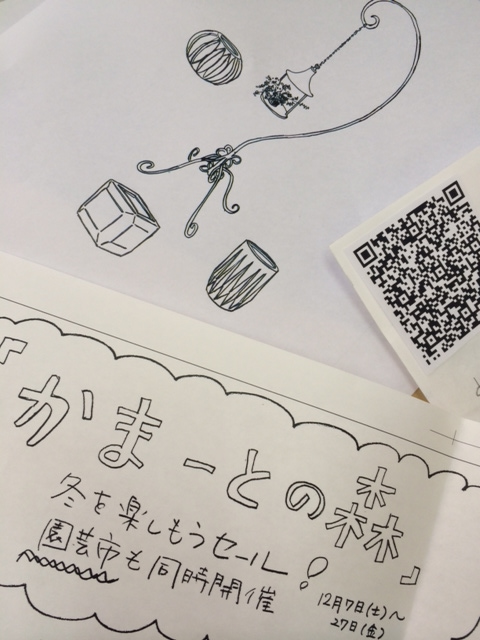 『かまーとの森』
冬を楽しもうセール!
園芸市も同時開催
12月7日(土)〜
27日(金)